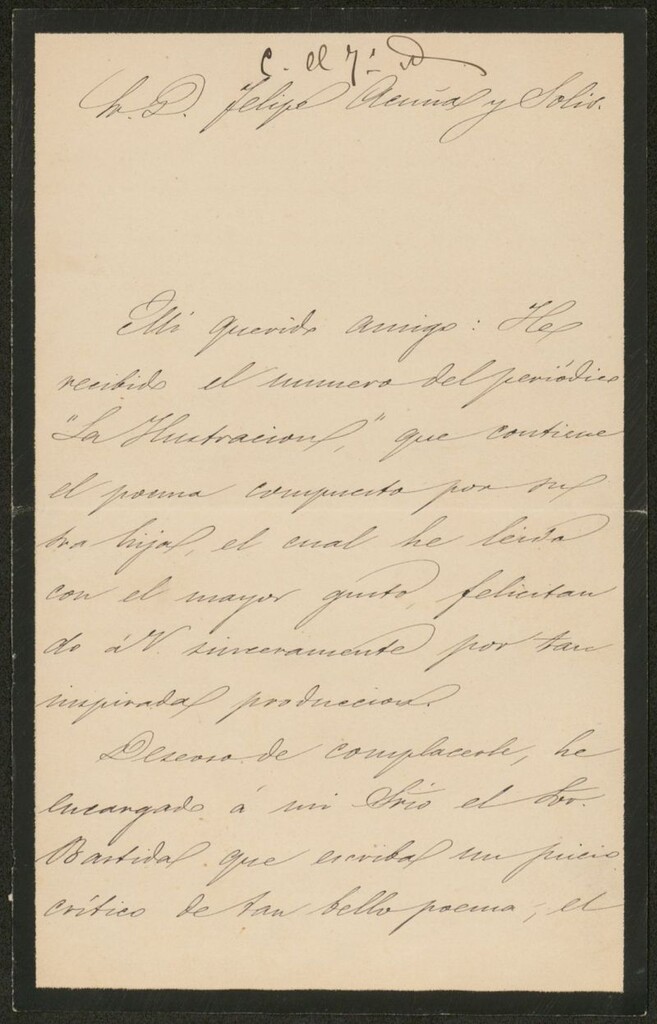 C. el 7:
Sr. D. Felipe Acuña y Solis.
Mi querido amigo: He
recibido el numero del periódico
"La Ilustracion," que contiene
el poema compuesto por su
sra hija, el cual he leido
con el mayor gusto, felicitan
do á V. sinceramente por tan
inspirada produccion.
Deseoso de complacerle, he
encargado á mi Srio el Sor.
Bastida que escriba un juicio
crítico de tan bello poema, el